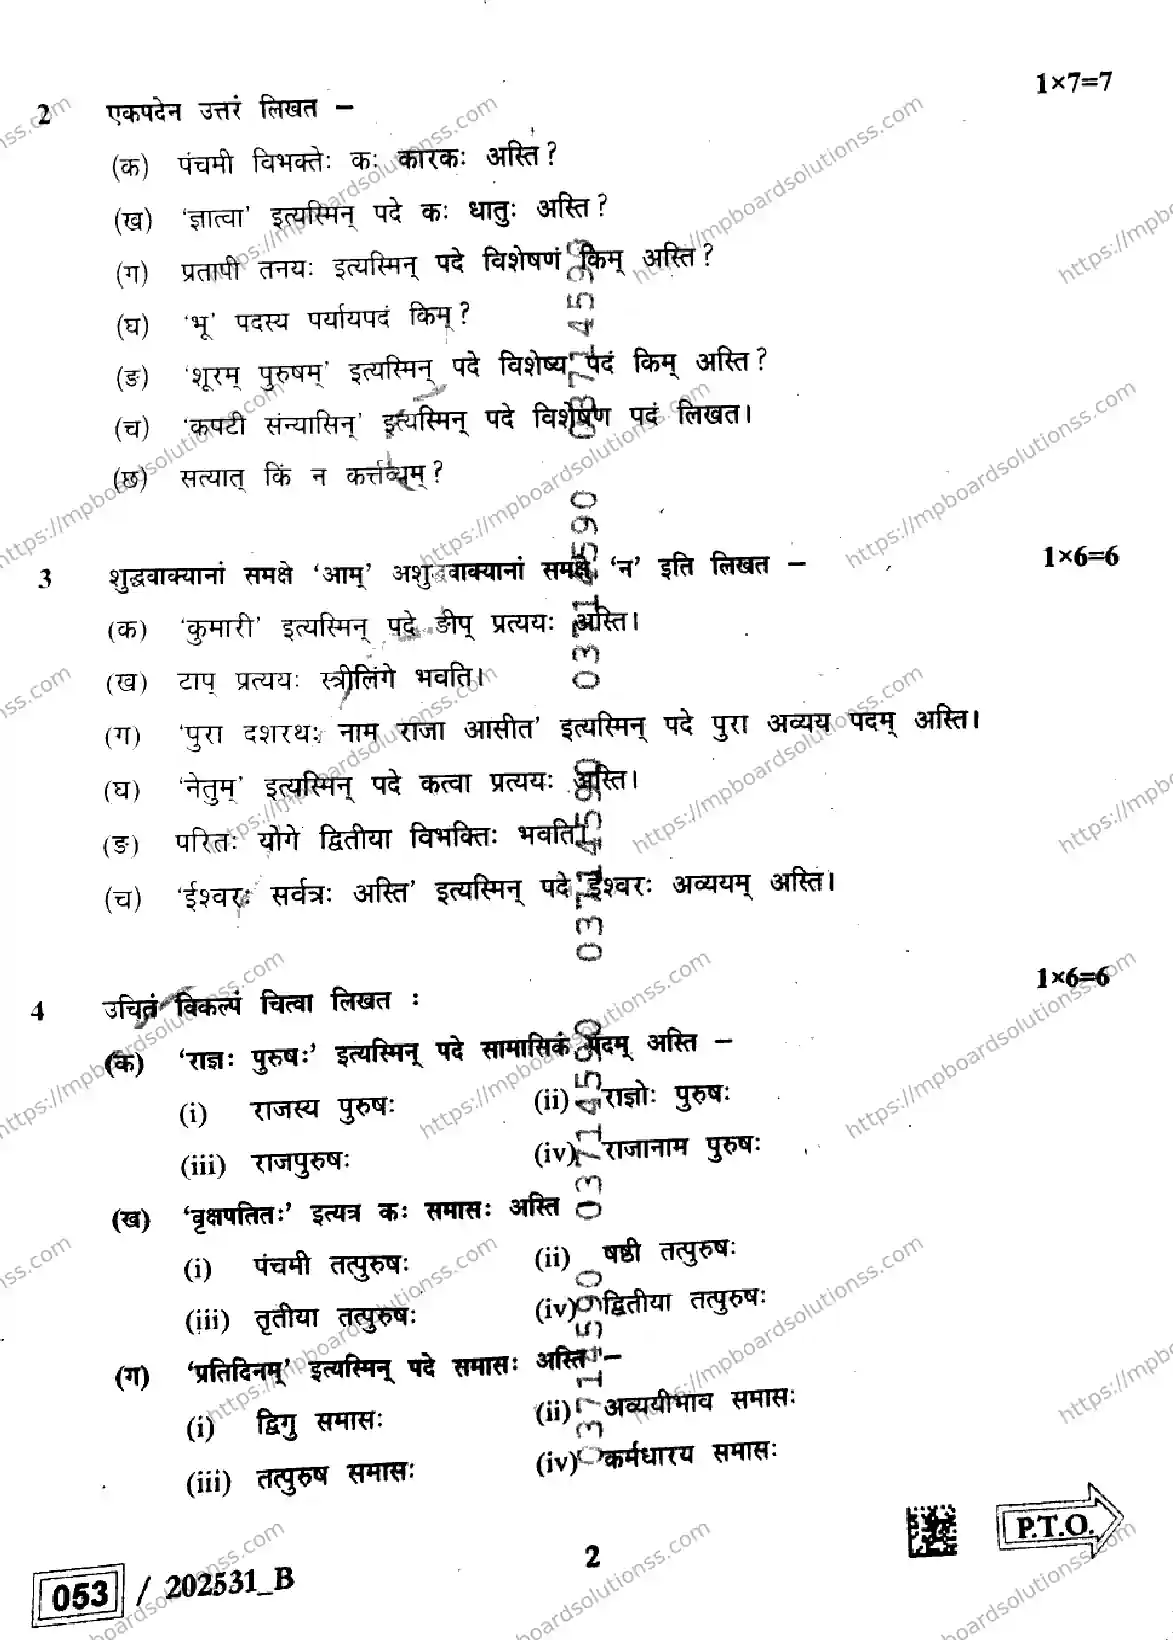 1×7=7
2 एकपदेन उत्तरं लिखत –
(क) पंचमी विभक्तेः कः कारकः अस्ति?
(ख) 'ज्ञात्वा' इत्यस्मिन् पदे कः धातुः अस्ति?
(ग) प्रतापी तनयः इत्यस्मिन् पदे विशेषणं किम् अस्ति?
(घ) 'भू' पदस्य पर्यायपदं किम्?
(ङ) 'शूरम् पुरुषम्' इत्यस्मिन् पदे विशेष्य पदं किम् अस्ति?
(च) 'कपटी संन्यासिन्' इत्यस्मिन् पदे विशेषण पदं लिखत।
(छ) सत्यात् किं न कर्त्तव्यम्?
3 शुद्धवाक्यानां समक्षे 'आम्' अशुद्धवाक्यानां समक्षे 'न' इति लिखत – 1×6=6
(क) 'कुमारी' इत्यस्मिन् पदे ङीप् प्रत्ययः अस्ति।
(ख) टाप् प्रत्ययः स्त्रीलिंगे भवति।
(ग) 'पुरा दशरथः नाम राजा आसीत' इत्यस्मिन् पदे पुरा अव्यय पदम् अस्ति।
(घ) 'नेतुम्' इत्यस्मिन् पदे कत्वा प्रत्ययः अस्ति।
(ङ) परितः योगे द्वितीया विभक्तिः भवति।
(च) 'ईश्वरः सर्वत्रः अस्ति' इत्यस्मिन् पदे ईश्वरः अव्ययम् अस्ति।
4 उचितं विकल्पं चित्वा लिखत : 1×6=6
(क) 'राज्ञः पुरुषः' इत्यस्मिन् पदे सामासिकं पदम् अस्ति –
(i) राजस्य पुरुषः (ii) राज्ञोः पुरुषः
(iii) राजपुरुषः (iv) राजानाम पुरुषः
(ख) 'वृक्षपतितः' इत्यत्र कः समासः अस्ति
(i) पंचमी तत्पुरुषः (ii) षष्ठी तत्पुरुषः
(iii) तृतीया तत्पुरुषः (iv) द्वितीया तत्पुरुषः
(ग) 'प्रतिदिनम्' इत्यस्मिन् पदे समासः अस्ति –
(i) द्विगु समासः (ii) अव्ययीभाव समासः
(iii) तत्पुरुष समासः (iv) कर्मधारय समासः
P.T.O.
053 / 202531_B
2
037145990
037145990
037145990
037145990
037145990
https://mpboardsolutionss.com